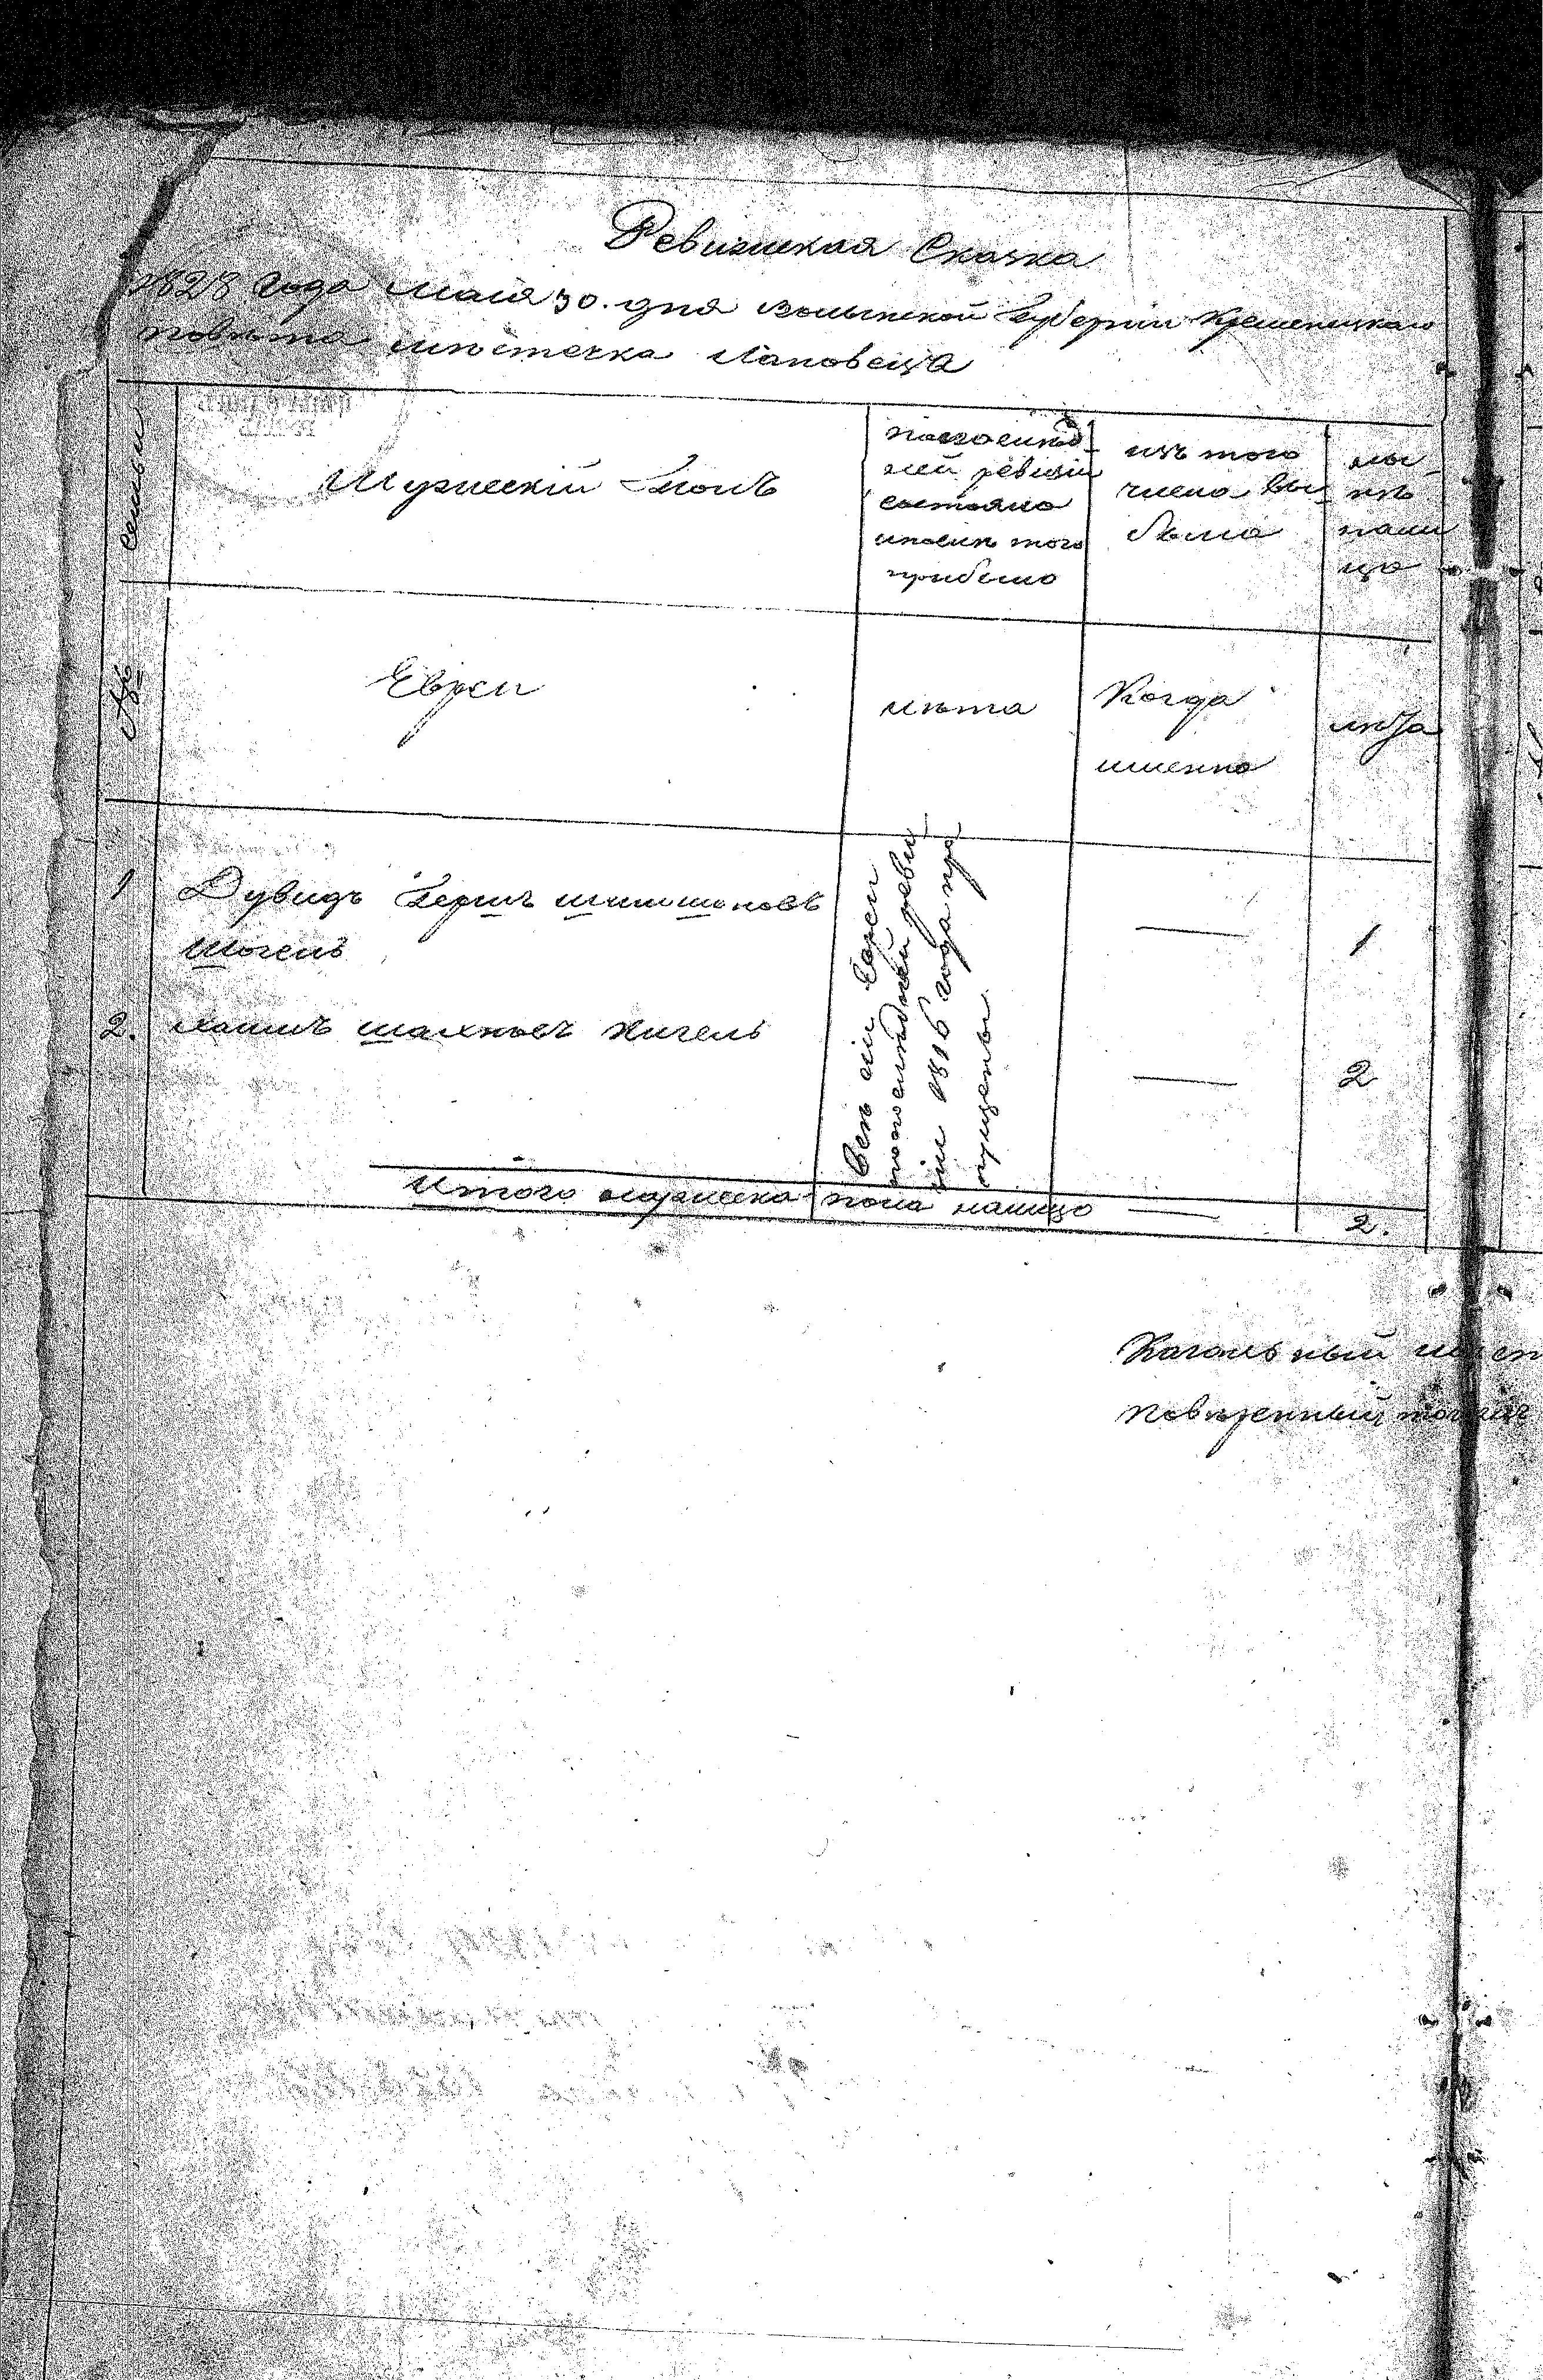 Ревизская Сказка
1828 года маія 30. дня волынской Губерніи Кременецкаго
повѣта мѣстечка Лановецъ
семьи
Мужескій Полъ
по послѣд-
ней ревизіи
состояло
и послѣ того
прибыло
изъ того
числа вы-
было
ны-
нѣ
нали
цо
№
Евреи
лѣта
Когда
именно
лѣта
1
Дувидъ Гершъ
1
2.
2
Всѣ сіи Евреи
по послѣдней реви-
зіи 1816 года про-
пущены.
Итого мужеска пола налицо
2.
Кагальный
Повѣренный